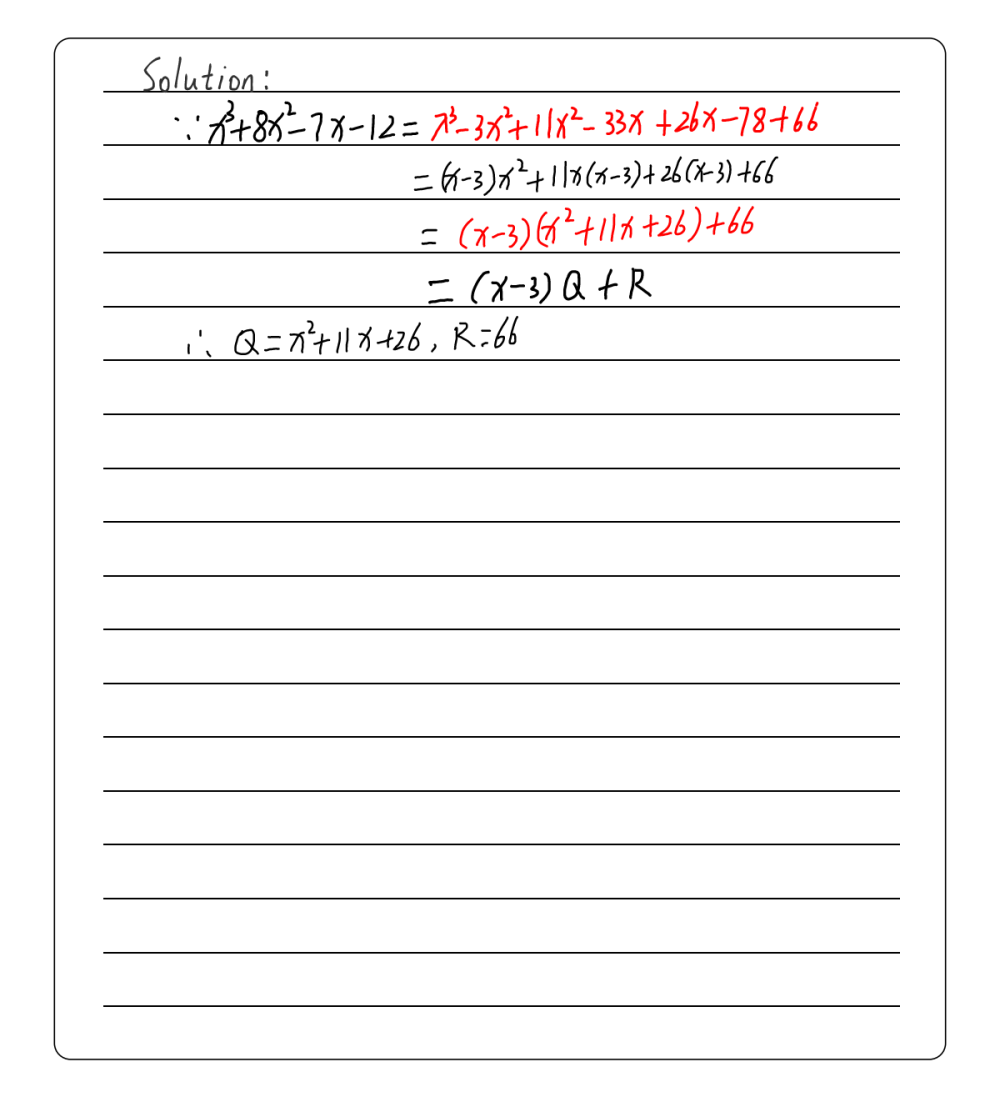 Solution:
∵ x³+8x²-7x-12 = x³-3x²+11x²-33x+26x-78+66
= (x-3)x²+11x(x-3)+26(x-3)+66
= (x-3)(x²+11x+26)+66
= (x-3)Q+R
∴ Q=x²+11x+26, R=66